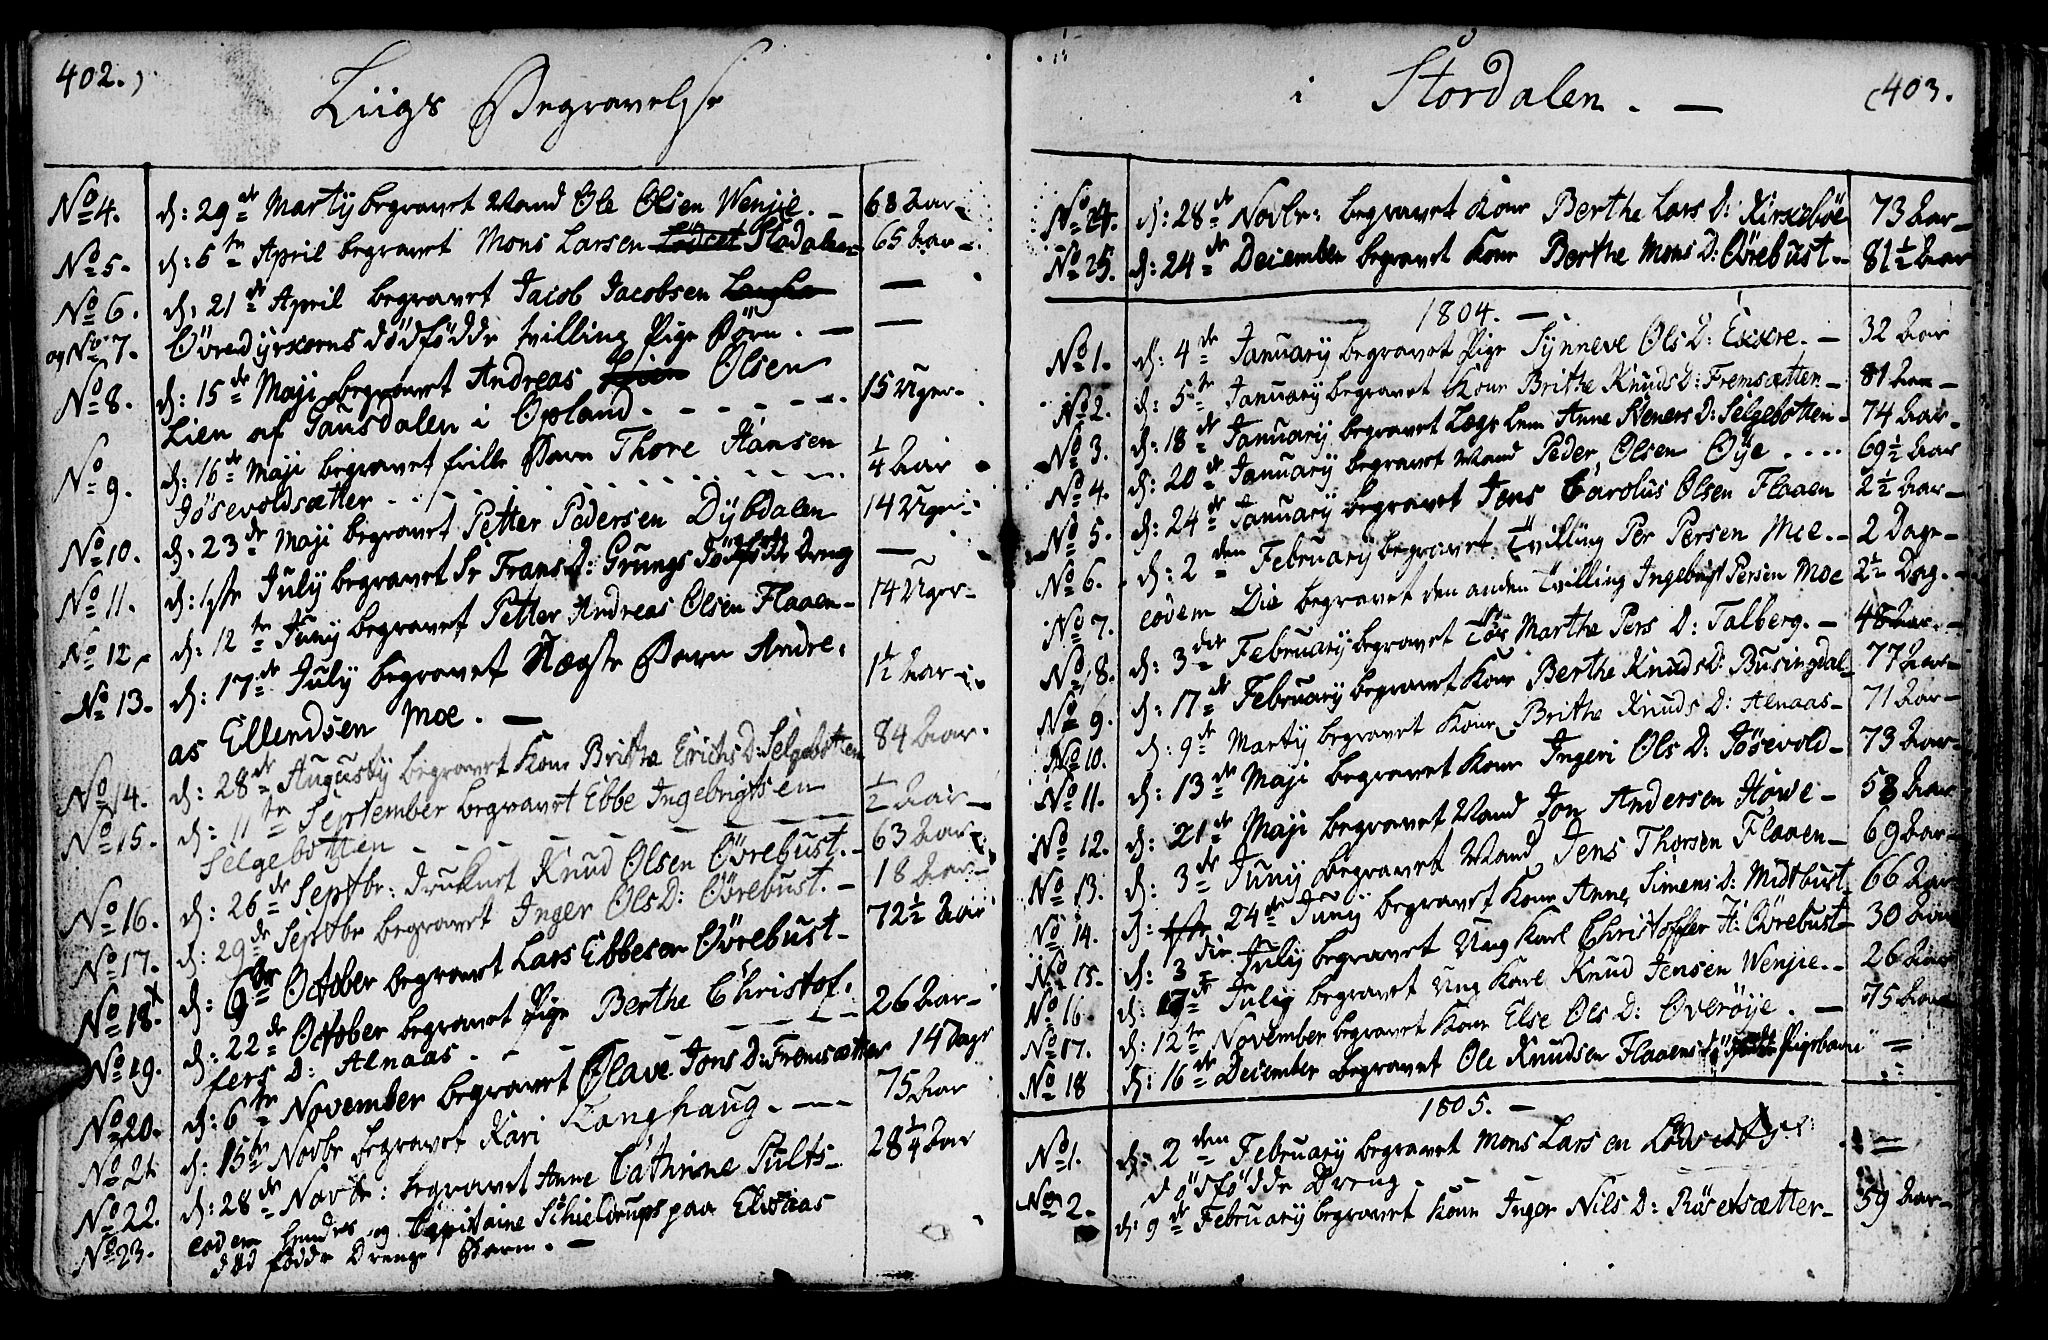 402.)
Liigs Begravelse
No 4. d: 29de Martÿ begravet Mand Ole Olsen Wenjie. – 68 Aar
No 5. d: 5te April begravet Mons Larsen Lödcet Stodalen 65 Aar
No 6. d: 21de April begravet Jacob Jacobsen –
og No 7. Övredÿrkorns dödfödde tvilling Pige Börn. – –
No 8. d: 15de Maji begravet Andreas Lien Olsen
Lien af Gausdalen i Opland. 15 Uger
No 9. d: 16de Maji begravet frille Barn Thore Hansen ¼ Aar
Jösevoldsætter
No 10. d. 23de Maji begravet Petter Pedersen Dÿbdalen 14 Uger
No 11. d: 1ste Julÿ begravet Sr Frans D: Grungs dödfödde Dreng –
No 12. d: 12te Junÿ begravet Petter Andreas Olsen Flaaen 14 Uger
No 13. d: 17de Julÿ begravet Barn Andre- 1½ Aar
as Ellendsen Moe. –
No 14. d: 28de Augustÿ begravet Kone Brithe Erichs D: Selgebotten 84 Aar.
No 15. d: 11te September begravet Ebbe Ingebrigtsen ½ Aar
Selgebotten
No 16. d: 26de Septbr: druknet Knud Olsen Övrebust. 63 Aar
No 17. d: 29de Septbr begravet Inger Ols D: Övrebust. – 18 Aar
No 18. d: 9de October begravet Lars Ebbesen Övrebust 72½ Aar
No 19. d: 22de October begravet Pige Berthe Christof-
fers D: Alnaas 26 Aar
No 20. d: 6te November begravet Olave Jons D: Fremsætter 14 Dage
No 21 d: 15de Novbr begravet Kari Langhaug. 75 Aar
No 22. d: 28de Novbr: begravet Anne Cathrine Sults 28¼ Aar
No 23. eodem hendes og Capitaine Schieldrups paa Elistaas
död födde Drenge Barn. –
i Stordalen. –
(403.
No 24. d: 28de Novbr: begravet Kone Berthe Lars D: Kirkebøe 73 Aar
No 25. d: 24de December begravet Kone Berthe Mons D: Övrebust 81½ Aar
1804. –
No 1. d: 4de Januarÿ begravet Pige Sÿnneve Ols D: Eccre. – 32 Aar
No 2. d: 5te Januarÿ begravet Kone Brithe Knuds D: Fremsætter 81 Aar
No 3. d: 18de Januarÿ begravet Lægs Lem Anne Steners D: Selgebotten 74 Aar
No 4. d: 20de Januarÿ begravet Mand Peder Olsen Øye 69½ Aar
No 5. d: 24de Januarÿ begravet Jens Carolus Olsen Flaaen 2½ Aar
No 6. d: 2den Februarÿ begravet Tvilling Per Persen Moe. 2 Dage
No 7. eodem Die begravet den anden Tvilling Ingebrigt Persen Moe 2½ Dag.
No 8. d: 3die Februarÿ begravet Marthe Pers D: Talberg. – 48 Aar.
No 9. d: 17de Februarÿ begravet Kone Berthe Knuds D: Busingdal 77 Aar
No 10. d: 9de Martÿ begravet Kone Brithe Knuds D: Alnaas 71 Aar
No 11. d: 13de Maji begravet Kone Ingeri Ols D: Jösevold 73 Aar
No 12. d: 21de Maji begravet Mand Jon Andersen Howe 58 Aar
No 13. d: 3de Junÿ begravet Mand Jens Thorsen Flaaen 69 Aar
No 14. d: 1ste 24de Junÿ begravet Kone Anne Simens D: Midtbust 66 Aar
No 15. d: 3die Julÿ begravet Ung Karl Christoffer H: Övrebust 30 Aar
No 16 d: 17de Julÿ begravet Ung Karl Knud Jensen Wenjie. 26 Aar
No 17. d: 12te November begravet Kone Else Ols D: Overöÿe. – 75 Aar
No 18 d: 16de December begravet Ole Knudsen Flaaens dödfödde Pigebarn –
1805. –
No 1. d: 2den Februarÿ begravet Mons Larsen –
dödfödde Dreng.
No 2. d: 9de Februarÿ begravet Kone Inger Nils D: Röselsætter 59 Aar